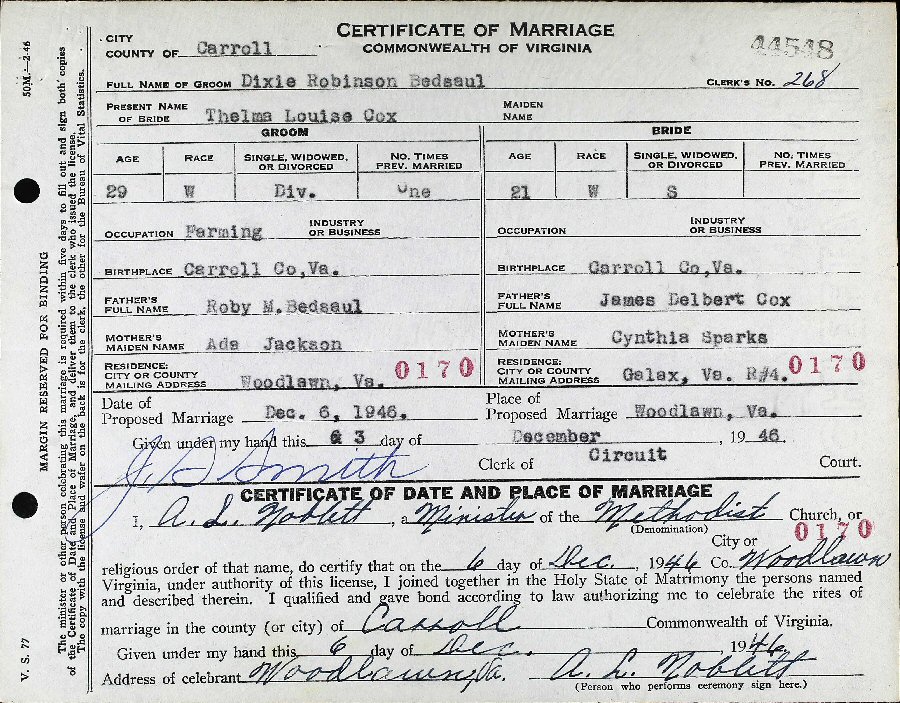 CERTIFICATE OF MARRIAGE
COMMONWEALTH OF VIRGINIA
44548
CITY
COUNTY OF Carroll
FULL NAME OF GROOM Dixie Robinson Bedsaul CLERK'S NO. 268
PRESENT NAME OF BRIDE Thelma Louise Cox MAIDEN NAME
GROOM BRIDE
AGE RACE SINGLE, WIDOWED, OR DIVORCED NO. TIMES PREV. MARRIED AGE RACE SINGLE, WIDOWED, OR DIVORCED NO. TIMES PREV. MARRIED
29 W Div. One 21 W S
OCCUPATION Farming INDUSTRY OR BUSINESS OCCUPATION INDUSTRY OR BUSINESS
BIRTHPLACE Carroll Co,Va. BIRTHPLACE Carroll Co,Va.
FATHER'S FULL NAME Roby M.Bedsaul FATHER'S FULL NAME James Delbert Cox
MOTHER'S MAIDEN NAME Ada Jackson MOTHER'S MAIDEN NAME Cynthia Sparks
RESIDENCE: CITY OR COUNTY MAILING ADDRESS Woodlawn, Va. 0170 RESIDENCE: CITY OR COUNTY MAILING ADDRESS Galax, Va. R#4. 0170
Date of Proposed Marriage Dec. 6, 1946. Place of Proposed Marriage Woodlawn, Va.
Given under my hand this 3 day of December, 1946.
J. D Smith Clerk of Circuit Court.
CERTIFICATE OF DATE AND PLACE OF MARRIAGE
I, A. L. Noblett, a Minister of the Methodist Church, or
(Denomination)
0170
City or
religious order of that name, do certify that on the 6 day of Dec., 1946 Co. Woodlawn
Virginia, under authority of this license, I joined together in the Holy State of Matrimony the persons named
and described therein. I qualified and gave bond according to law authorizing me to celebrate the rites of
marriage in the county (or city) of Carroll Commonwealth of Virginia.
Given under my hand this 6 day of Dec. 1946
Address of celebrant Woodlawn, Va. A. L. Noblett
(Person who performs ceremony sign here.)
50M—2-46
MARGIN RESERVED FOR BINDING
V. S. 77
The minister or other person celebrating this marriage is required within five days to fill out and sign both copies
of the Certificate of Date and Place of Marriage, and deliver them to the clerk who issued the license.
The copy with the license and wafer on the back is for the clerk, the other for the Bureau of Vital Statistics.